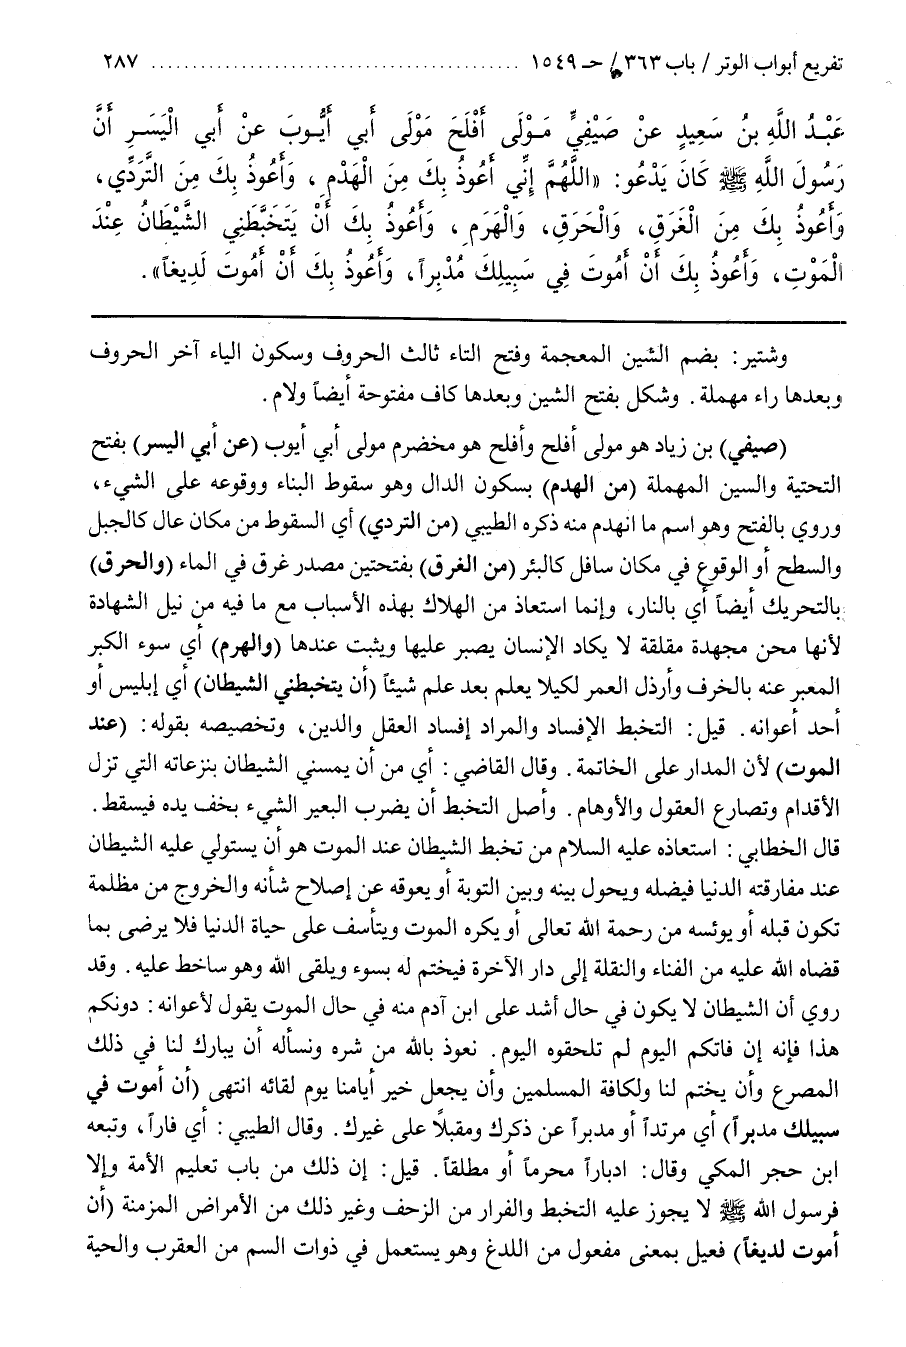 تفريع أبواب الوتر / باب ٣٦٣/ حـ ١٥٤٩ ........................................... ٢٨٧
عَبْدُ اللَّهِ بنُ سَعِيدٍ عنْ صَيْفِيٍّ مَوْلَى أَفْلَحَ مَوْلَى أَبي أَيُّوبَ عنْ أَبي الْيَسَرِ أَنَّ
رَسُولَ اللَّهِ ﷺ كَانَ يَدْعُو: «اللَّهُمَّ إِنِّي أَعُوذُ بِكَ مِنَ الْهَدْمِ، وَأَعُوذُ بِكَ مِنَ التَّرَدِّي،
وَأَعُوذُ بِكَ مِنَ الْغَرَقِ، وَالْحَرَقِ، وَالْهَرَمِ، وَأَعُوذُ بِكَ أَنْ يَتَخَبَّطَنِي الشَّيْطَانُ عِنْدَ
الْمَوْتِ، وَأَعُوذُ بِكَ أَنْ أَمُوتَ فِي سَبِيلِكَ مُدْبِراً، وَأَعُوذُ بِكَ أَنْ أَمُوتَ لَدِيغاً».
وشتير: بضم الشين المعجمة وفتح التاء ثالث الحروف وسكون الياء آخر الحروف
وبعدها راء مهملة. وشكل بفتح الشين وبعدها كاف مفتوحة أيضاً ولام.
(صيفي) بن زياد هو مولى أفلح وأفلح هو مخضرم مولى أبي أيوب (عن أبي اليسر) بفتح
التحتية والسين المهملة (من الهدم) بسكون الدال وهو سقوط البناء ووقوعه على الشيء،
وروي بالفتح وهو اسم ما انهدم منه ذكره الطيبي (من التردي) أي السقوط من مكان عال كالجبل
والسطح أو الوقوع في مكان سافل كالبئر (من الغرق) بفتحتين مصدر غرق في الماء (والحرق)
بالتحريك أيضاً أي بالنار، وإنما استعاذ من الهلاك بهذه الأسباب مع ما فيه من نيل الشهادة
لأنها محن مجهدة مقلقة لا يكاد الإنسان يصبر عليها ويثبت عندها (والهرم) أي سوء الكبر
المعبر عنه بالخرف وأرذل العمر لكيلا يعلم بعد علم شيئاً (أن يتخبطني الشيطان) أي إبليس أو
أحد أعوانه. قيل: التخبط الإفساد والمراد إفساد العقل والدين، وتخصيصه بقوله: (عند
الموت) لأن المدار على الخاتمة. وقال القاضي: أي من أن يمسني الشيطان بنزعاته التي تزل
الأقدام وتصارع العقول والأوهام. وأصل التخبط أن يضرب البعير الشيء بخف يده فيسقط.
قال الخطابي: استعاذه عليه السلام من تخبط الشيطان عند الموت هو أن يستولي عليه الشيطان
عند مفارقته الدنيا فيضله ويحول بينه وبين التوبة أو يعوقه عن إصلاح شأنه والخروج من مظلمة
تكون قبله أو يوئسه من رحمة الله تعالى أو يكره الموت ويتأسف على حياة الدنيا فلا يرضى بما
قضاه الله عليه من الفناء والنقلة إلى دار الآخرة فيختم له بسوء ويلقى الله وهو ساخط عليه. وقد
روي أن الشيطان لا يكون في حال أشد على ابن آدم منه في حال الموت يقول لأعوانه: دونكم
هذا فإنه إن فاتكم اليوم لم تلحقوه اليوم. نعوذ بالله من شره ونسأله أن يبارك لنا في ذلك
المصرع وأن يختم لنا ولكافة المسلمين وأن يجعل خير أيامنا يوم لقائه انتهى (أن أموت في
سبيلك مدبراً) أي مرتداً أو مدبراً عن ذكرك ومقبلاً على غيرك. وقال الطيبي: أي فاراً، وتبعه
ابن حجر المكي وقال: ادباراً محرماً أو مطلقاً. قيل: إن ذلك من باب تعليم الأمة وإلا
فرسول الله ﷺ لا يجوز عليه التخبط والفرار من الزحف وغير ذلك من الأمراض المزمنة (أن
أموت لديغاً) فعيل بمعنى مفعول من اللدغ وهو يستعمل في ذوات السم من العقرب والحية